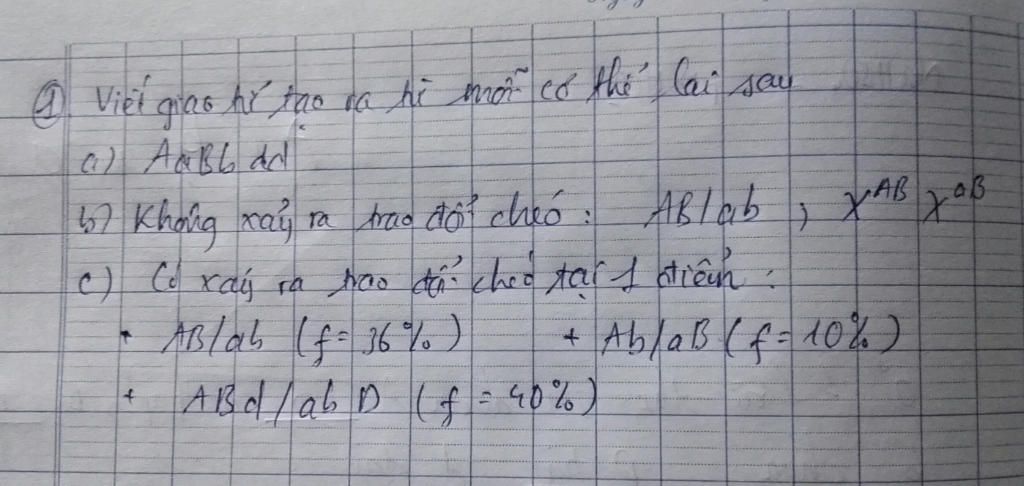 ① Viết giao tử tạo ra từ mỗi cơ thể lai sau
a) AaBb dd
b) Không xảy ra trao đổi chéo: AB/ab ; X^AB X^aB
c) Có xảy ra trao đổi chéo tại 1 điểm:
+ AB/ab (f= 36%) + Ab/aB (f= 10%)
+ ABd/abD (f = 40%)